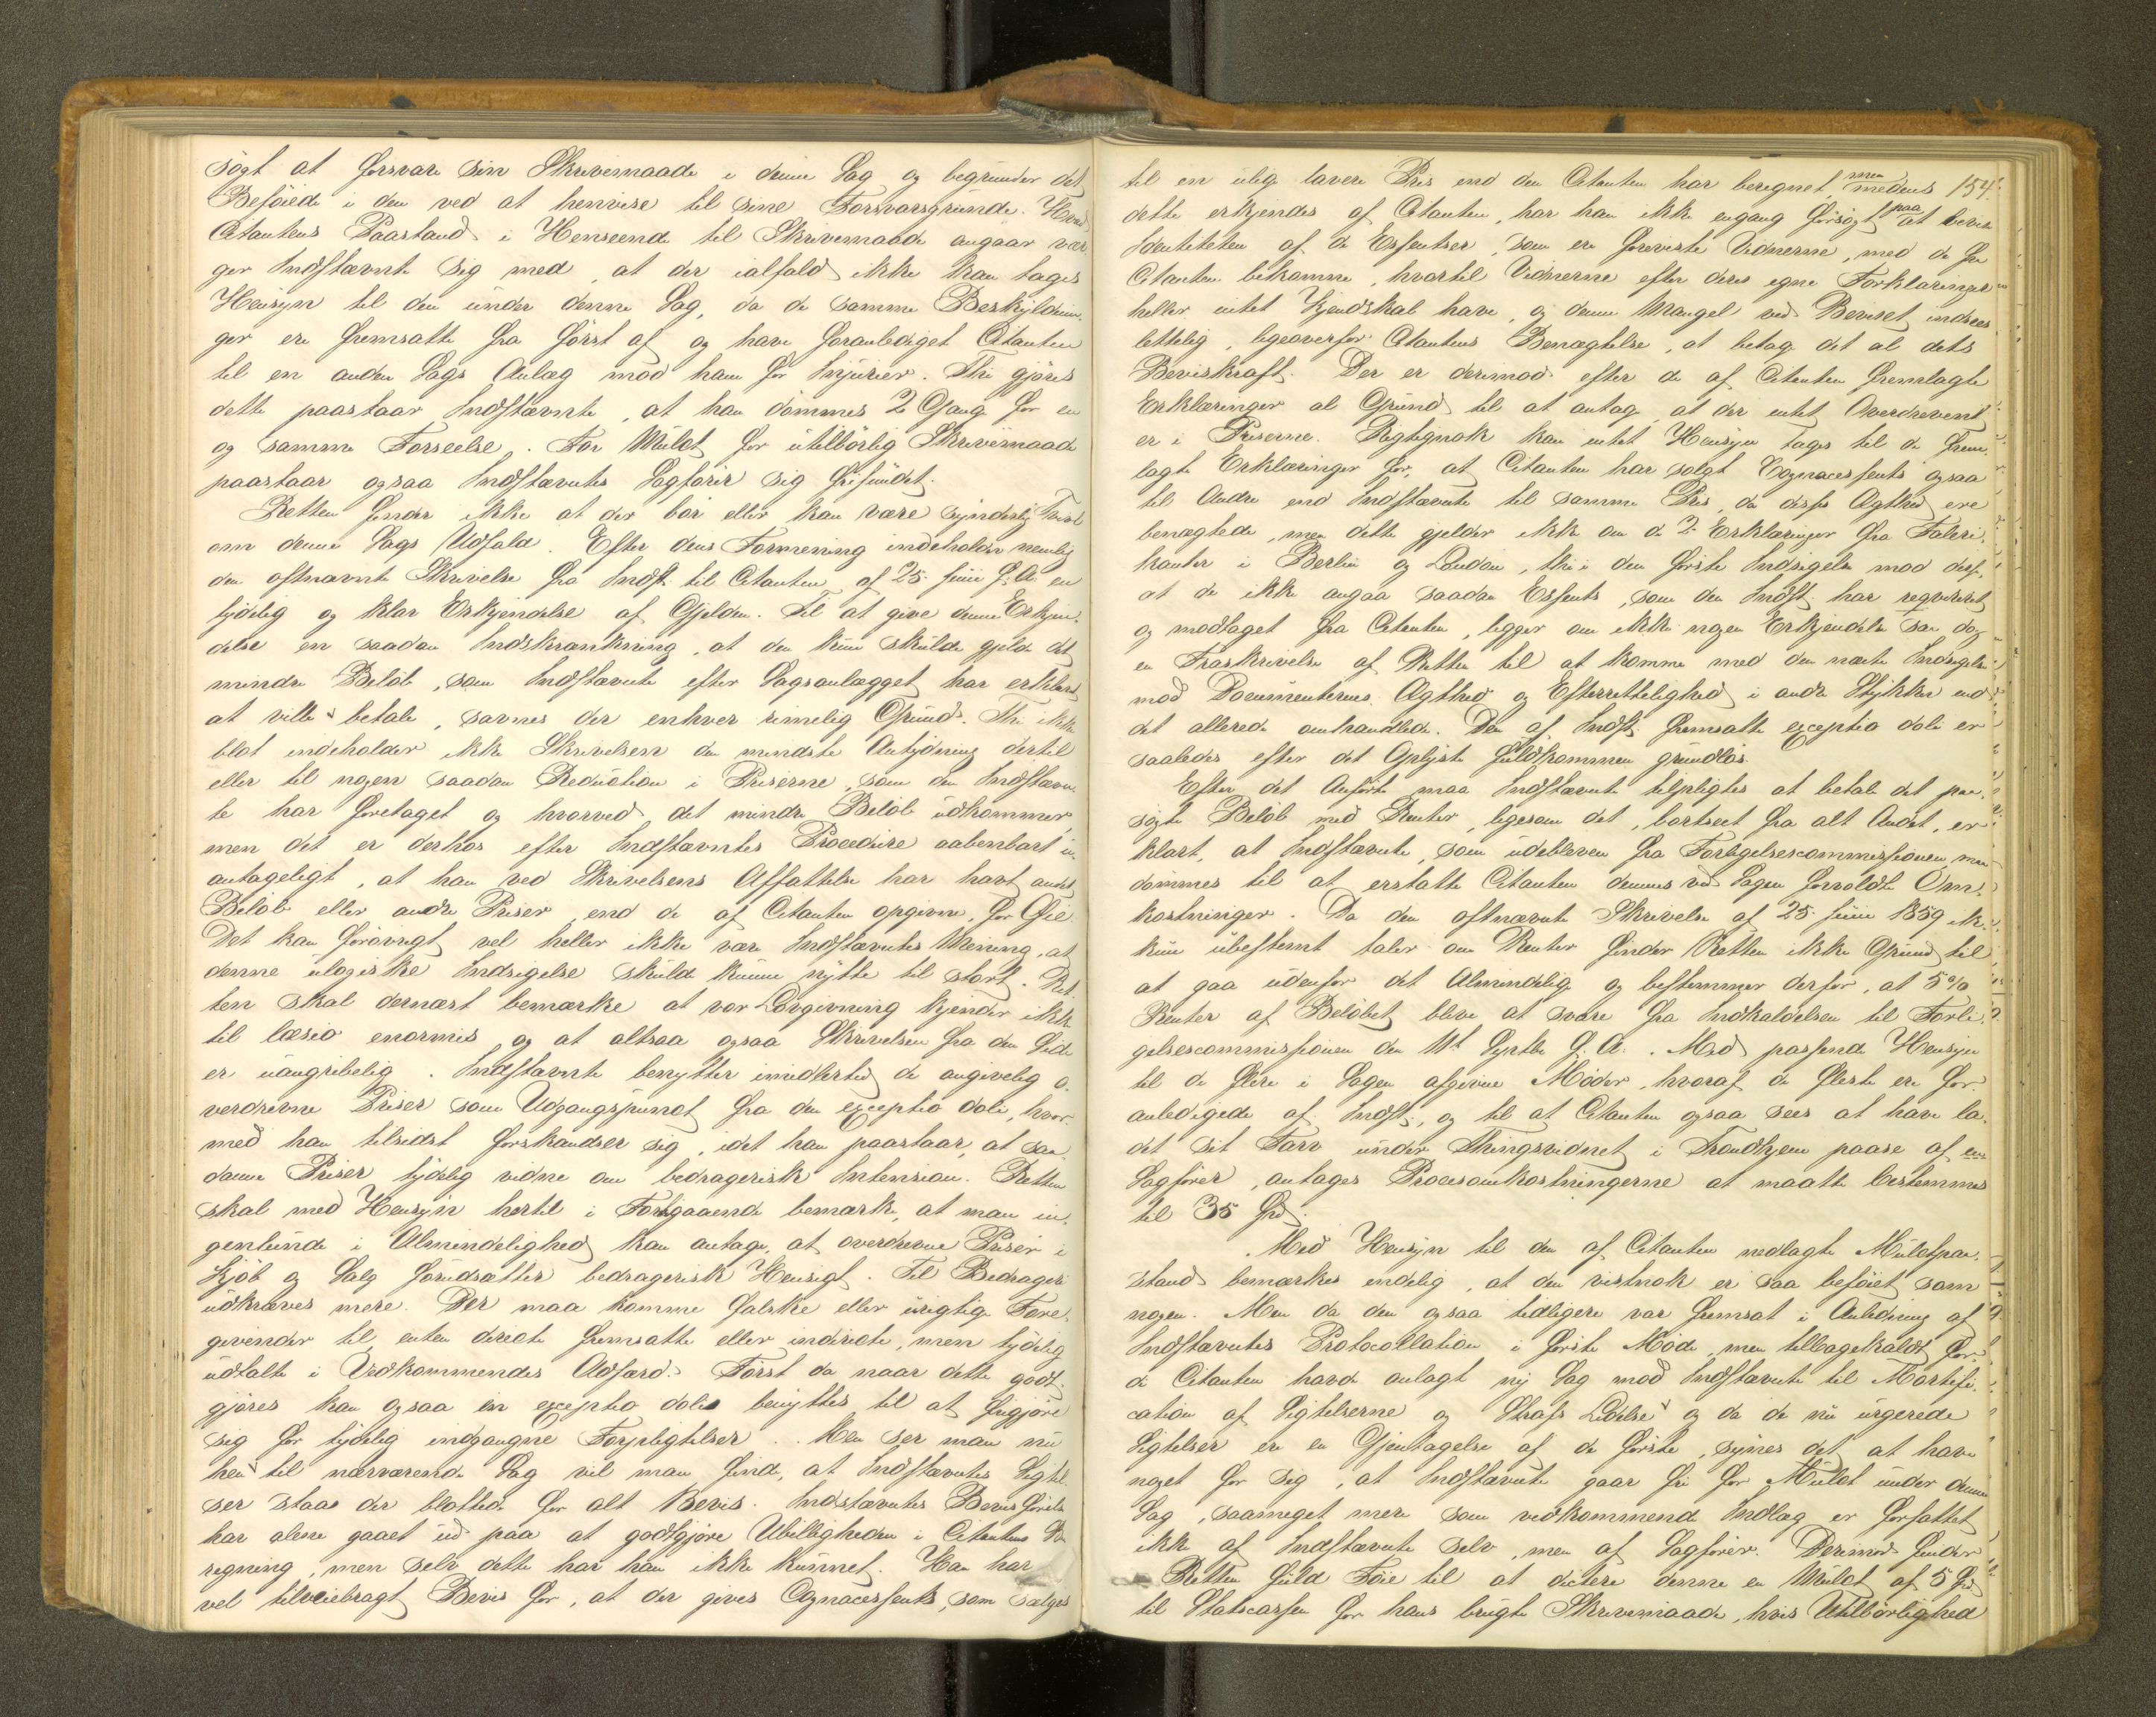 søgt at forsvare sin Skrivemaade i denne Sag og begrunder det
Beføiede i den ved at henvise til sine Forsvarsgrunde. Hvad
Citantens Paastand i Henseende til Skrivemaade angaar vær-
ger Indstævnte sig med, at der ialfald ikke kan tages
Hensyn til den under denne Sag, da de samme Beskyldnin-
ger ere fremsatte fra først af og have foranlediget Citanten
til en anden Sags Anlæg mod ham for Injurier. Thi gjøres
dette paastaar Indstævnte, at han dømmes 2 Gange for en
og samme Forseelse. For Mulct for utilbørlig Skrivemaade
paastaar ogsaa Indstævntes Sagfører sig frifundet.
Retten finder ikke at der bør eller kan være synderlig Tvivl
om denne Sags Udfald. Efter dens Formening indeholder nemlig
den oftnævnte Skrivelse fra Indst. til Citanten af 25 Juni f. A. en
tydelig og klar Erkjendelse af Gjelden. Til at give denne Erkjen-
delse en saadan Indskrænkning, at den kun skulde gjelde det
mindre Beløb, som Indstævnte efter Sagsanlægget har erklæret
at ville betale, savnes der enhver rimelig Grund. Thi ikke
blot indeholder ikke Skrivelsen den mindste Antydning dertil
eller til nogen saadan Reduction i Priserne, som den Indstævn-
te har foretaget og hvorved det mindre Beløb udkommer,
men det er derhos efter Indstævntes Procedure aabenbart u-
antageligt, at han ved Skrivelsens Affattelse har havt andet
Beløb eller andre Priser end de af Citanten opgivne, for Øie.
Det kan forøvrigt vel heller ikke være Indstævntes Mening, at
denne ulogiske Indsigelse skulde kunne nytte til stort. Ret-
ten skal dernæst bemærke at vor Lovgivning kjender ikke
til læsio enormis og at altsaa ogsaa Skrivelsen fra den Side
er uangribelig. Indstævnte benytter imidlertid de angivelig o-
verdrevne Priser som Udgangspunct fra den exceptio doli, hvor-
med han tilsidst forskandser sig, idet han paastaar, at saa-
danne Priser tydelig vidne om bedragerisk Intension. Retten
skal med Hensyn hertil i Forbigaaende bemærke, at man in-
genlunde i Almindelighed kan antage, at overdrevne Priser i
Kjøb og Salg forudsætter bedragerisk Hensigt. Til Bedrageri
udkræves mere. Der maa komme falske eller urigtige Fore-
givender til, enten directe fremsatte eller indirecte, men tydelig
udtalte i Vedkommendes Adfærd. Først da naar dette godt-
gjøres kan ogsaa en exceptio doli benyttes til at frigjøre
sig for tydelig indgangne Forpligtelser. Men ser man nu
hen til nærværende Sag vil man finde, at Indstævntes Sigtel-
ser staae der blottede for alt Bevis. Indstævntes Bevisførelse
har alene gaaet ud paa at godtgjøre Ubilligheden i Citantens Be-
regning, men selv dette har han ikke kunnet. Han har
vel tilveiebragt Bevis for, at der gives Cognacessents, som sælges
til en ulige lavere Pris end den Citanten har beregnet, men medens 154.
dette erkjendes af Citanten, har han ikke engang forsøgt paa at bevise
Identiteten af de Essentser, som ere foreviste Vidnerne, med de fra
Citanten bekomne, hvortil Vidnerne efter deres egne Forklaringer
heller intet Kjendskab have, og denne Mangel ved Beviset indsees
lettelig, ligeoverfor Citantens Benægtelse, at betage det al dets
Beviskraft. Der er derimod efter de af Citanten fremlagte
Erklæringer al Grund til at antage, at der intet Overdrevent
er i Priserne. Rigtignok kan intet Hensyn tages til de frem-
lagte Erklæringer for, at Citanten har solgt Cognacessents ogsaa
til Andre end Indstævnte til samme Pris, da disses Ægthed ere
benægtede, men dette gjelder ikke om de 2 Erklæringer fra Fabri-
kanter i Berlin og London, thi i den første Indsigelse mod disse,
at de ikke angaa saadan Essents, som den Indst. har reqvireret
og modtaget fra Citanten, ligger om ikke nogen Erkjendelse saa dog
en Fraskrivelse af Retten til at komme med den næste Indsigelse
mod Documenternes Ægthed og Efterrettelighed i andre Stykker end
det allerede omhandlede. Den af Indst. fremsatte exceptio doli er
saaledes efter det Oplyste fuldkommen grundløs.
Efter det Anførte maa Indstævnte tilpligtes at betale det paa-
søgte Beløb med Renter, ligesom det, bortseet fra alt Andet, er
klart, at Indstævnte, som udebleven fra Forligelsescommissionen maa
dømmes til at erstatte Citanten dennes ved Sagen forvoldte Om-
kostninger. Da den oftnævnte Skrivelse af 25 Juni 1859 ik-
kun ubestemt taler om Renter finder Retten ikke Grund til
at gaa udenfor det Almindelige og bestemmer derfor, at 5 %
Renter af Beløbet blive at svare fra Indkaldelsen til Forli-
gelsescommissionen den 11te Septbr f. A. Med passende Hensyn
til de flere i Sagen afgivne Møder, hvoraf de fleste ere for-
anledigede af Indst., og til at Citanten ogsaa sees at have la-
det sit Tarv under Thingsvidnet i Trondhjem paase af en
Sagfører, antages Procesomkostningerne at maatte bestemmes
til 35 Spd.
Med Hensyn til den af Citanten nedlagte Mulctpaa-
stand bemærkes endelig, at den vistnok er saa beføiet som
nogen. Men da den ogsaa tidligere var fremsat i Anledning af
Indstævntes Protocollation i første Møde, men tilbagekaldt for-
di Citanten havde anlagt ny Sag mod Indstævnte til Mortifi-
cation af Sigtelserne og Strafs Lidelse og da de nu urgerede
Sigtelser ere en Gjentagelse af de første, synes det at have
noget for sig, at Indstævnte gaar fri for Mulct under denne
Sag, saameget mere som vedkommende Indlæg er forfattet
ikke af Indstævnte selv, men af Sagfører. Derimod finder
Retten fuld Føie til at dictere denne en Mulct af 5 Spd
til Statscassen for hans brugte Skrivemaade, hvis Utilbørlighed